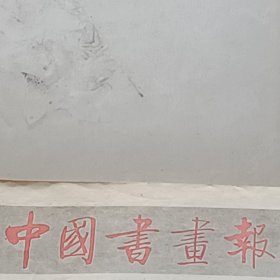 中國書畫報